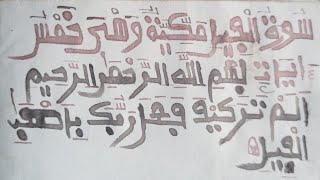 سورة الفيل مكية وهي خمس
ءايات بسم الله الرحمن الرحيم
ألم تر كيف فعل ربك بأصحب
الفيل